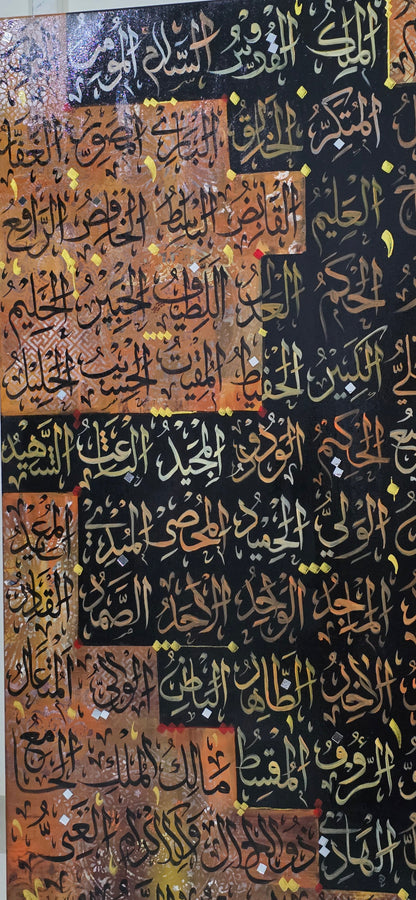 الملك القدوس السلام المؤمن
المتكبر الخالق البارئ المصور الغفار
العليم القابض الباسط الخافض الرافع
الحكم العدل اللطيف الخبير الحليم
الكبير الحفيظ المقيت الحسيب الجليل
الحكيم الودود المجيد الباعث الشهيد
الولي الحميد المحصي المبدئ المعيد
الماجد الواحد الاحد الصمد القادر
الآخر الظاهر الباطن الوالي المتعال
الرؤوف المقسط مالك الملك الجامع
الهادي ذو الجلال والاكرام الغني